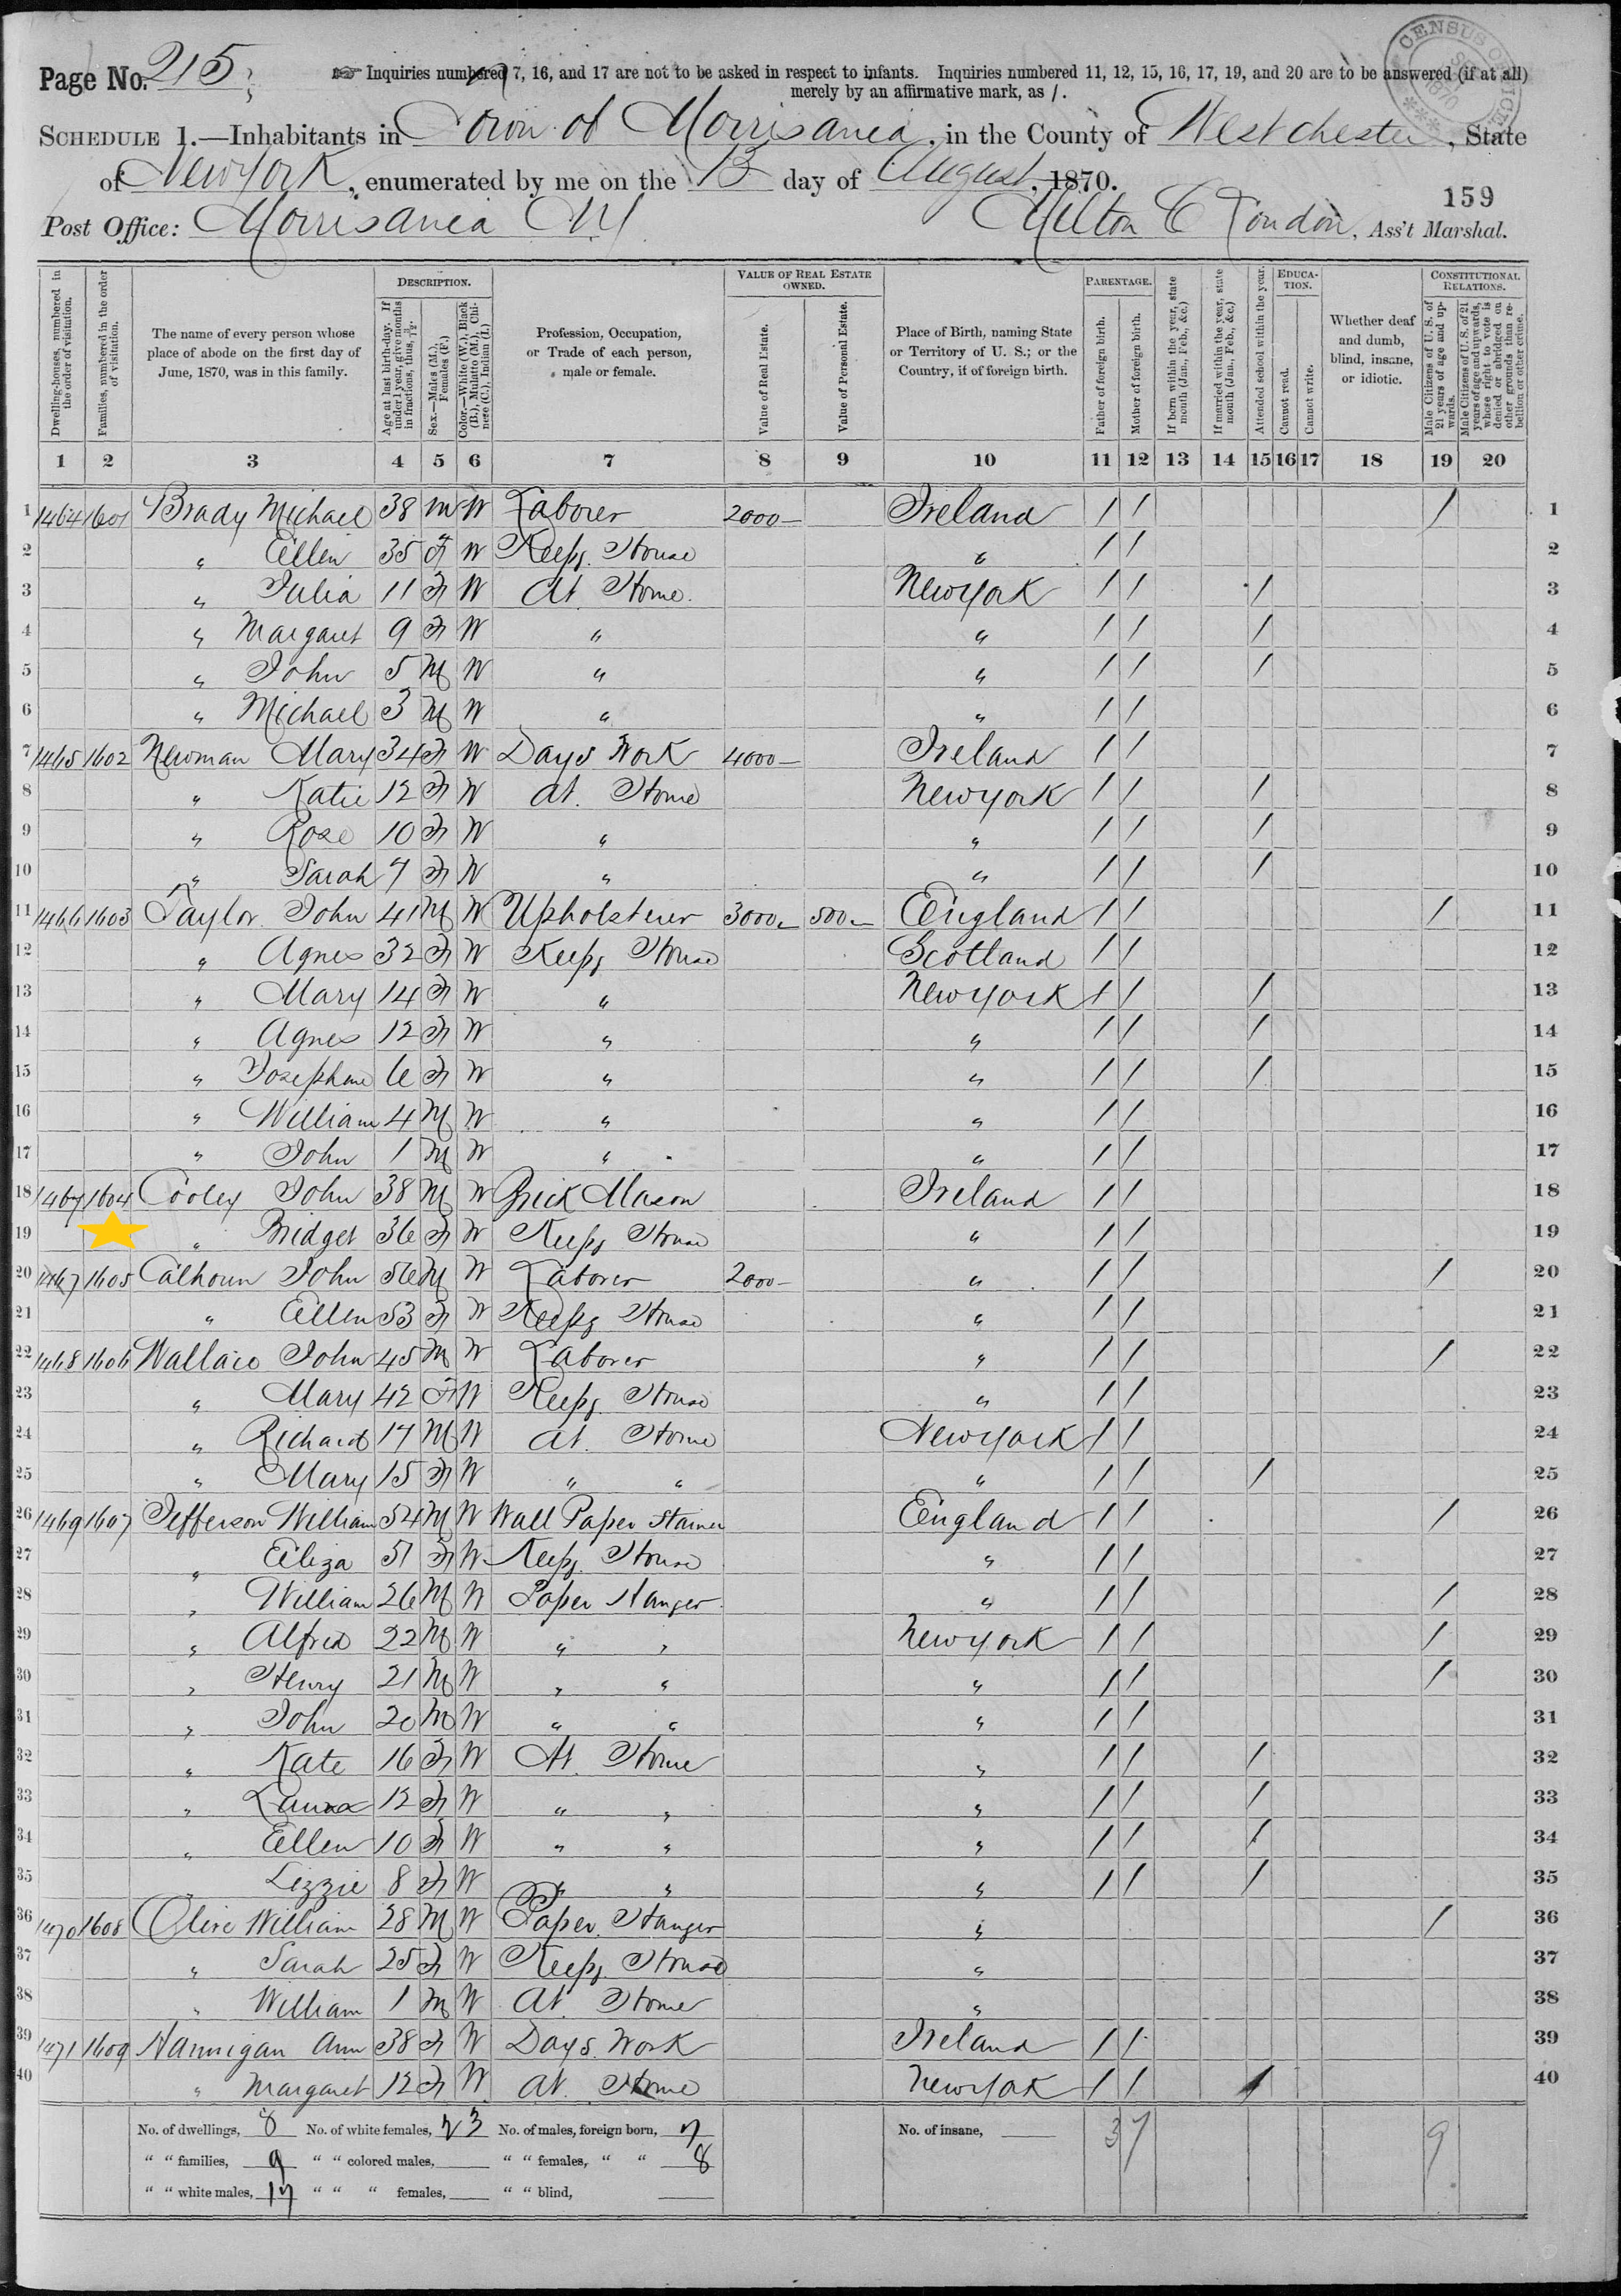 Page No. 215
☞ Inquiries numbered 7, 16, and 17 are not to be asked in respect to infants. Inquiries numbered 11, 12, 15, 16, 17, 19, and 20 are to be answered (if at all)
merely by an affirmative mark, as /.
CENSUS OFFICE 1870
SCHEDULE 1.—Inhabitants in Town of Morrisania, in the County of Westchester, State
of New York, enumerated by me on the 13 day of August, 1870.
159
Post Office: Morrisania N Y Milton C London, Ass't Marshal.
Dwelling-houses, numbered in the order of visitation.
Families, numbered in the order of visitation.
The name of every person whose place of abode on the first day of June, 1870, was in this family.
DESCRIPTION.
Age at last birth-day. If under 1 year, give months in fractions, thus, 3/12.
Sex.—Males (M.), Females (F.)
Color.—White (W.), Black (B.), Mulatto (M.), Chinese (C.), Indian (I.)
Profession, Occupation, or Trade of each person, male or female.
VALUE OF REAL ESTATE OWNED.
Value of Real Estate.
Value of Personal Estate.
Place of Birth, naming State or Territory of U. S.; or the Country, if of foreign birth.
PARENTAGE.
Father of foreign birth.
Mother of foreign birth.
If born within the year, state month (Jan., Feb., &c.)
If married within the year, state month (Jan., Feb., &c.)
EDUCATION.
Attended school within the year.
Cannot read.
Cannot write.
Whether deaf and dumb, blind, insane, or idiotic.
CONSTITUTIONAL RELATIONS.
Male Citizens of U. S. of 21 years of age and upwards.
Male Citizens of U. S. of 21 years of age and upwards, whose right to vote is denied or abridged on other grounds than rebellion or other crime.
1 2 3 4 5 6 7 8 9 10 11 12 13 14 15 16 17 18 19 20
1 1464 1601 Brady Michael 38 M W Laborer 2000— Ireland / / / 1
2 " Ellen 35 F W Keepg. House " / / 2
3 " Julia 11 F W At Home. New York / / / 3
4 " Margaret 9 F W " " / / / 4
5 " John 5 M W " " / / / 5
6 " Michael 3 M W " " / / 6
7 1465 1602 Newman Mary 34 F W Days Work 4000— Ireland / / 7
8 " Katie 12 F W At. Home New York / / / 8
9 " Rose 10 F W " " / / / 9
10 " Sarah 7 F W " " / / / 10
11 1466 1603 Taylor John 41 M W Upholsterer 3000— 500— England / / / 11
12 " Agnes 32 F W Keepg House Scotland / / 12
13 " Mary 14 F W " New York / / / 13
14 " Agnes 12 F W " " / / / 14
15 " Josephine 6 F W " " / / / 15
16 " William 4 M W " " / / 16
17 " John 1 M W " " / / 17
18 1467 1604 Cooley John 38 M W Brick Mason Ireland / / 18
19 " Bridget 36 F W Keepg House " / / 19
20 1467 1605 Calhoun John 56 M W Laborer 2000— " / / / 20
21 " Ellen 53 F W Keepg House " / / 21
22 1468 1606 Wallace John 45 M W Laborer " / / / 22
23 " Mary 42 F W Keepg. House " / / 23
24 " Richard 17 M W At. Home New York / / 24
25 " Mary 15 F W " " " / / / 25
26 1469 1607 Jefferson William 54 M W Wall Paper Stainer England / / / 26
27 " Eliza 51 F W Keepg. House " / / 27
28 " William 26 M W Paper Hanger " / / / 28
29 " Alfred 22 M W " " New York / / / 29
30 " Henry 21 M W " " " / / / 30
31 " John 20 M W " " " / / 31
32 " Kate 16 F W At. Home " / / / 32
33 " Laura 12 F W " " " / / / 33
34 " Ellen 10 F W " " " / / / 34
35 Lizzie 8 F W " " " / / / 35
36 1470 1608 Olive William 28 M W Paper Hanger " / 36
37 " Sarah 25 F W Keepg. House " 37
38 " William 1 M W At Home " 38
39 1471 1609 Hannigan Ann 38 F W Days. Work Ireland / / 39
40 " Margaret 12 F W At. Home New York / / / 40
No. of dwellings, 8 No. of white females, 23 No. of males, foreign born, 7 No. of insane, 37 9
" " families, 9 " " colored males, " " females, " " 8
" " white males, 17 " " " females, " " blind,